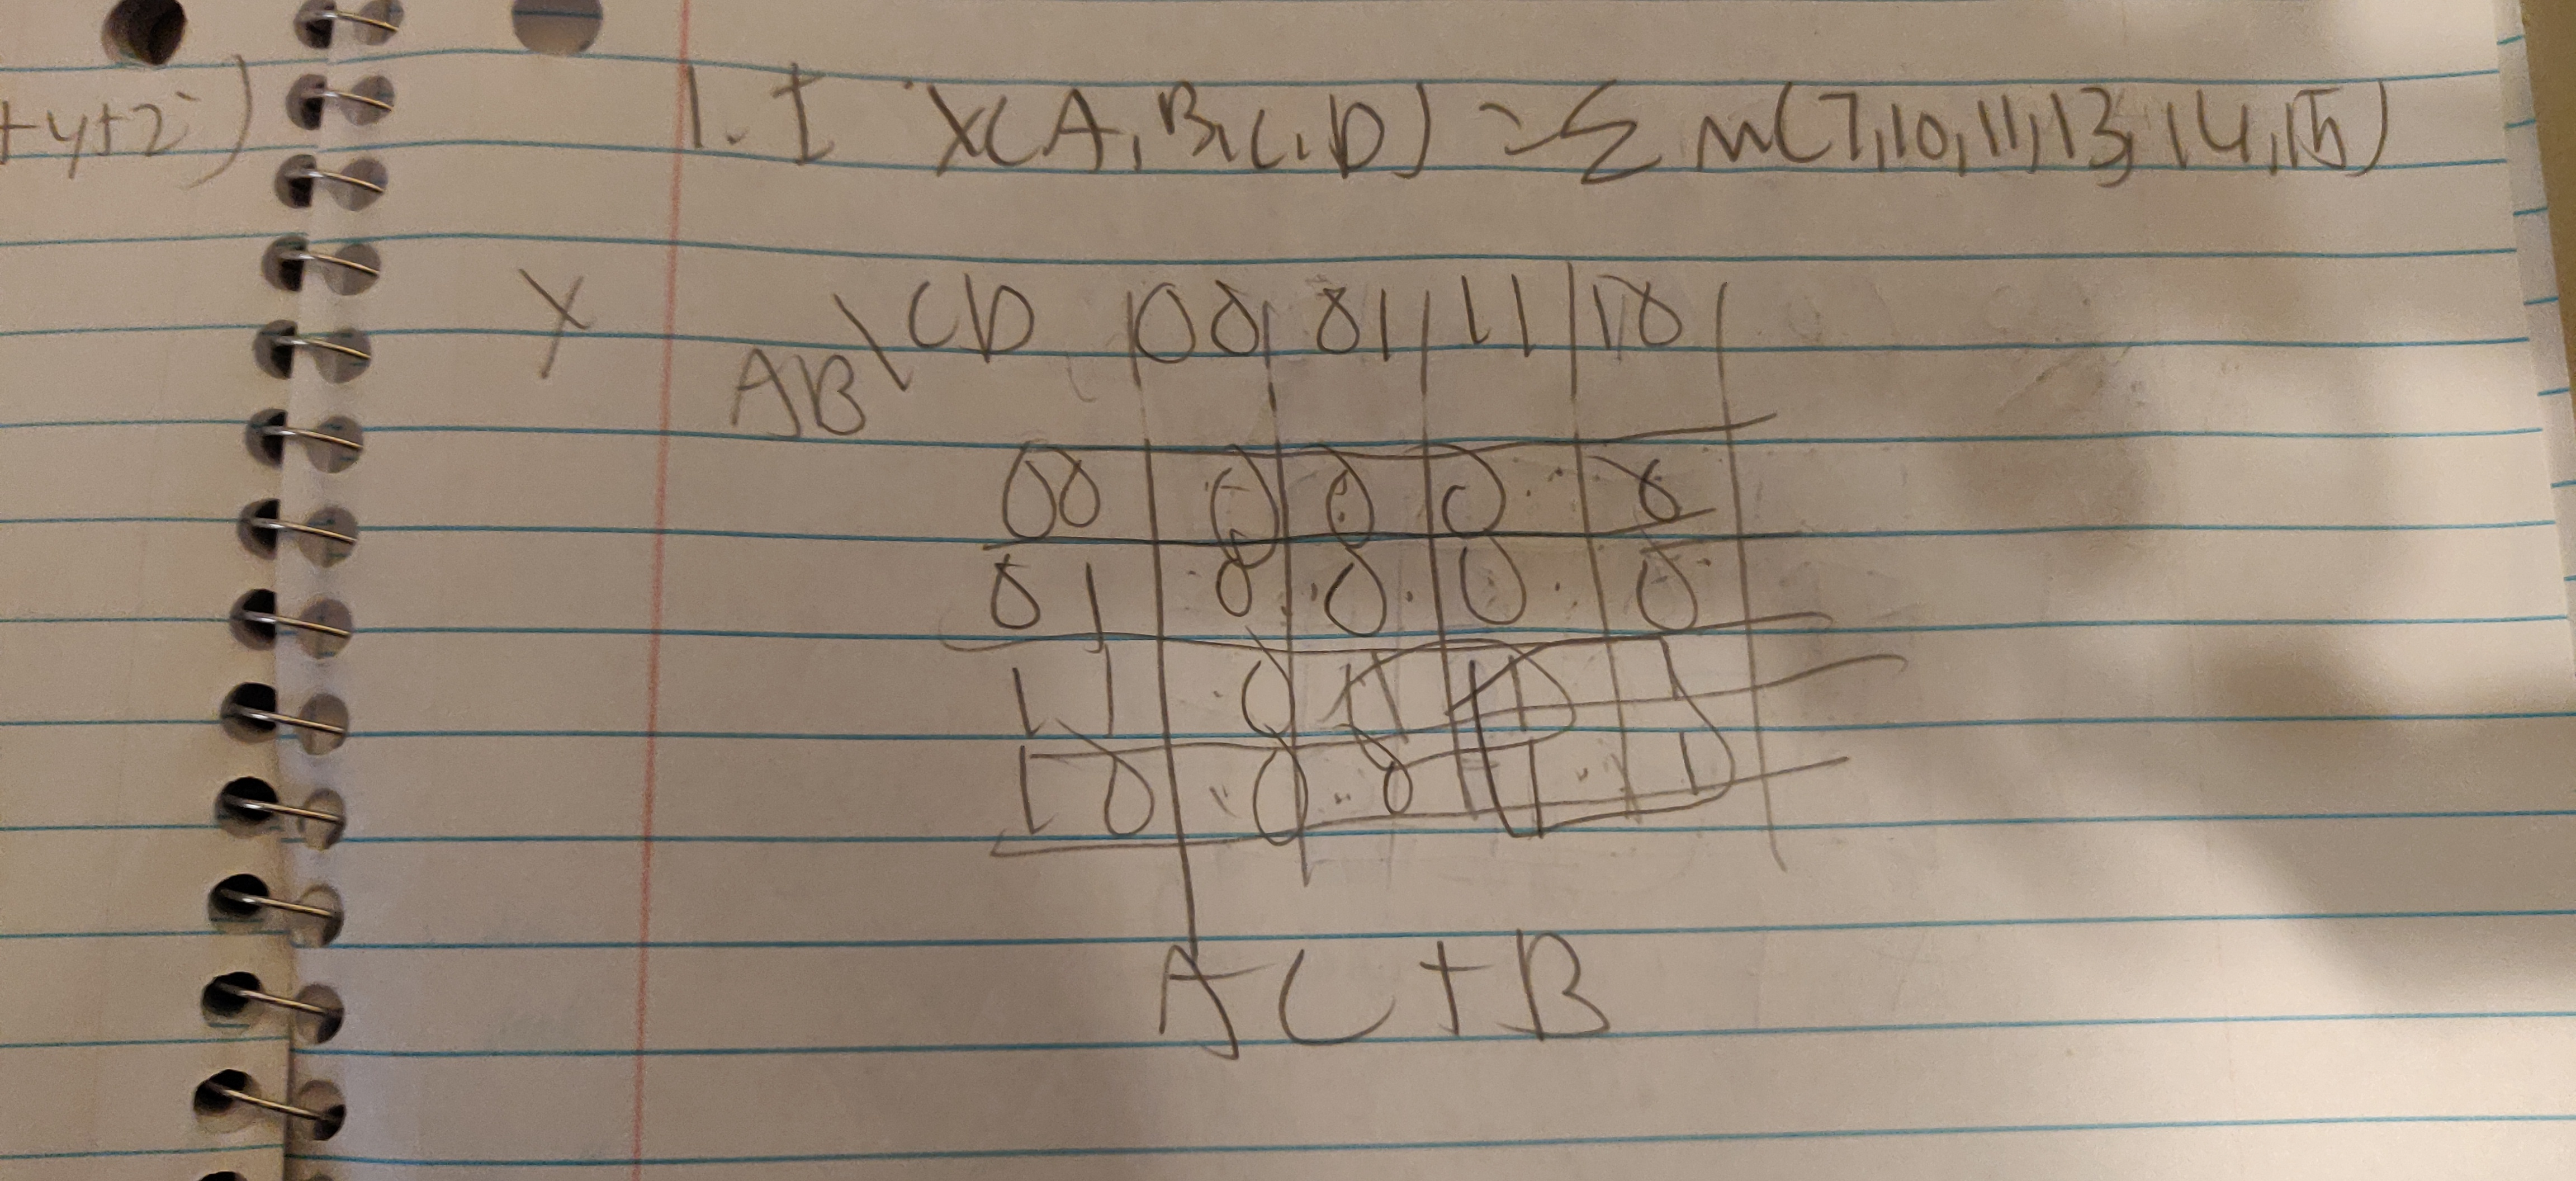 +y+z)
1. I X(A,B,C,D) = Σ m(7,10,11,13,14,15)
X \ CD | 00 | 01 | 11 | 10 |
AB
00 0 0 0 0
01 0 0 0 0
11 0 1 1 1
10 0 0 1 1
AC + B